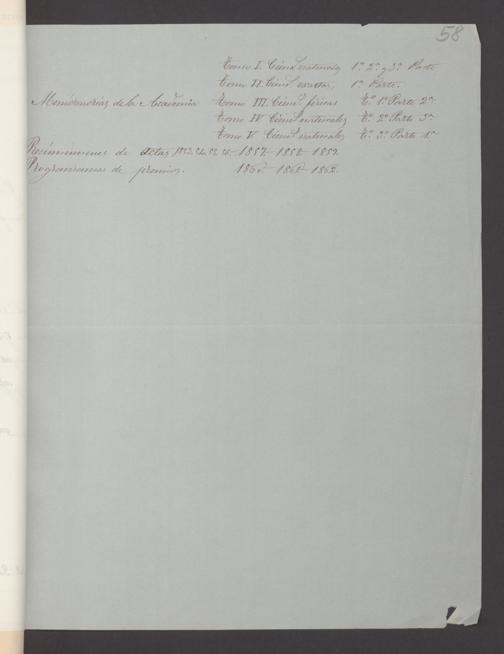 58
Tomo I. Cienc.s naturales 1.a 2.a y 3.a Parte
Tomo II. Cienc.s exactas, 1.a Parte.
Memorias de la Academia Tomo III. Cienc.s físicas T.o 1.o Parte 2.a
Tomo IV Cienc.s naturales T.o 2.o Parte 3.a
Tomo V Cienc.s naturales T.o 3.o Parte 1.a
Resúmenes de actas 1857-1858-1859.
Programas de premios. 1860-1861-1862.